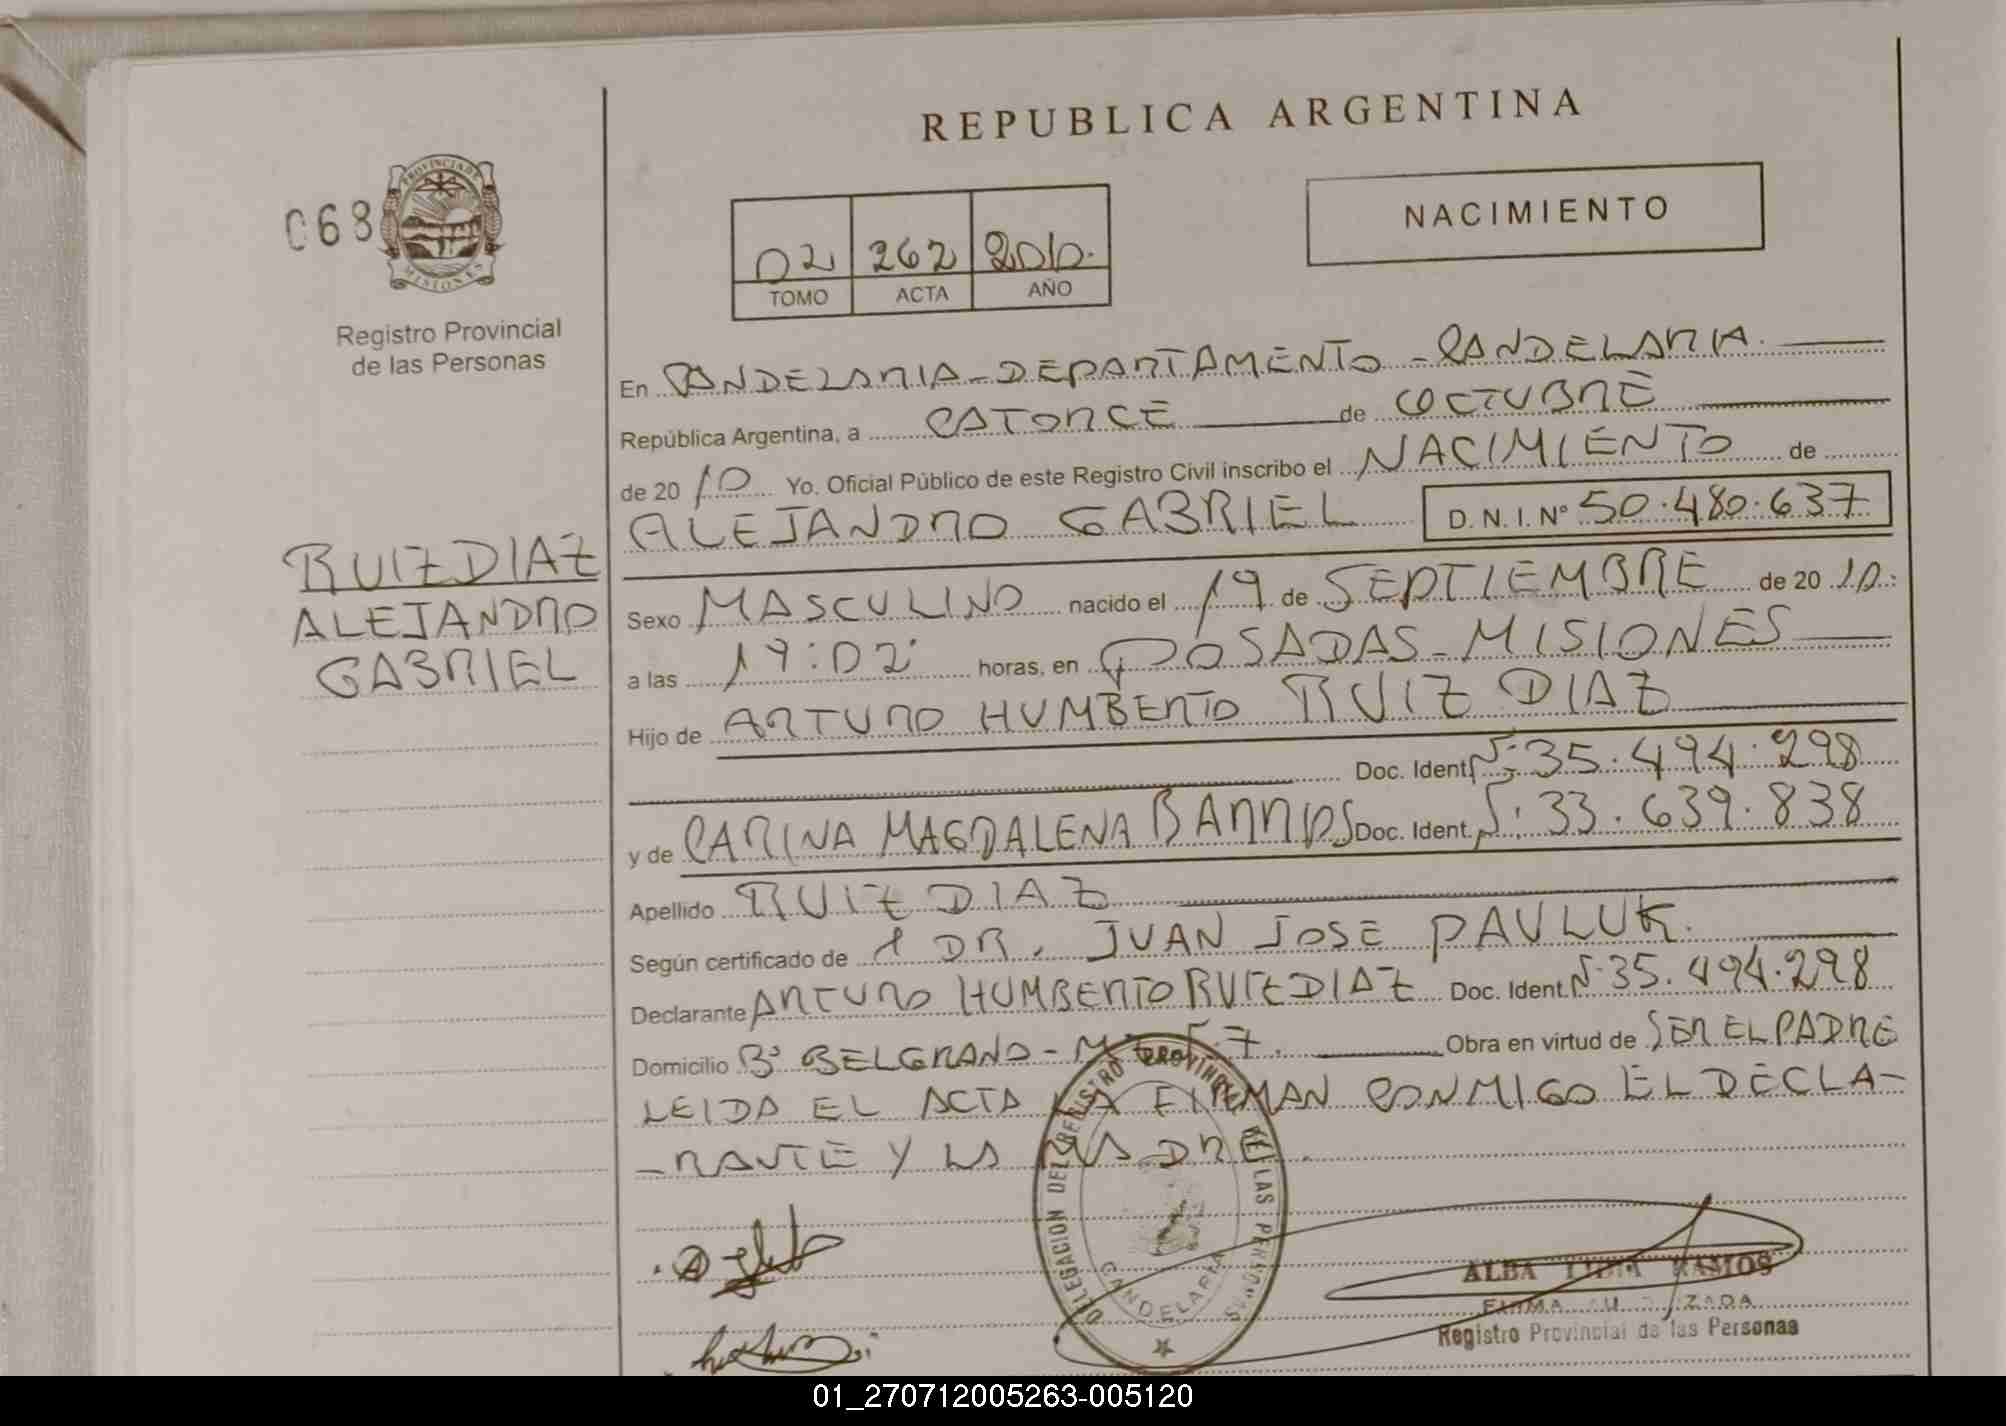 REPUBLICA ARGENTINA
068
PROVINCIA DE
MISIONES
Registro Provincial
de las Personas
NACIMIENTO
02 262 2010.
TOMO ACTA AÑO
En CANDELARIA - DEPARTAMENTO - CANDELARIA.
República Argentina, a CATORCE de OCTUBRE
de 20 10 Yo, Oficial Público de este Registro Civil inscribo el NACIMIENTO de
ALEJANDRO GABRIEL D.N.I. Nº 50.480.637
RUIZ DIAZ
ALEJANDRO
GABRIEL
Sexo MASCULINO nacido el 19 de SEPTIEMBRE de 20 10:
a las 19:02 horas, en POSADAS - MISIONES
Hijo de ARTURO HUMBERTO RUIZ DIAZ
Doc. Ident. Nº: 35.494.298
y de CARINA MAGDALENA BARRIOS Doc. Ident. Nº: 33.639.838
Apellido RUIZ DIAZ
Según certificado de DR. JUAN JOSE PAVLUK.
Declarante ARTURO HUMBERTO RUIZ DIAZ Doc. Ident. Nº 35.494.298
Domicilio Bº BELGRANO - 7. Obra en virtud de SER EL PADRE
LEIDA EL ACTA LA FIRMAN CONMIGO EL DECLA-
-RANTE Y LA MADRE.
DELEGACION DEL REGISTRO PROVINCIAL DE LAS PERSONAS
CANDELARIA
ALBA LIDIA RAMOS
FIRMA AUTORIZADA
Registro Provincial de las Personas
01_270712005263-005120